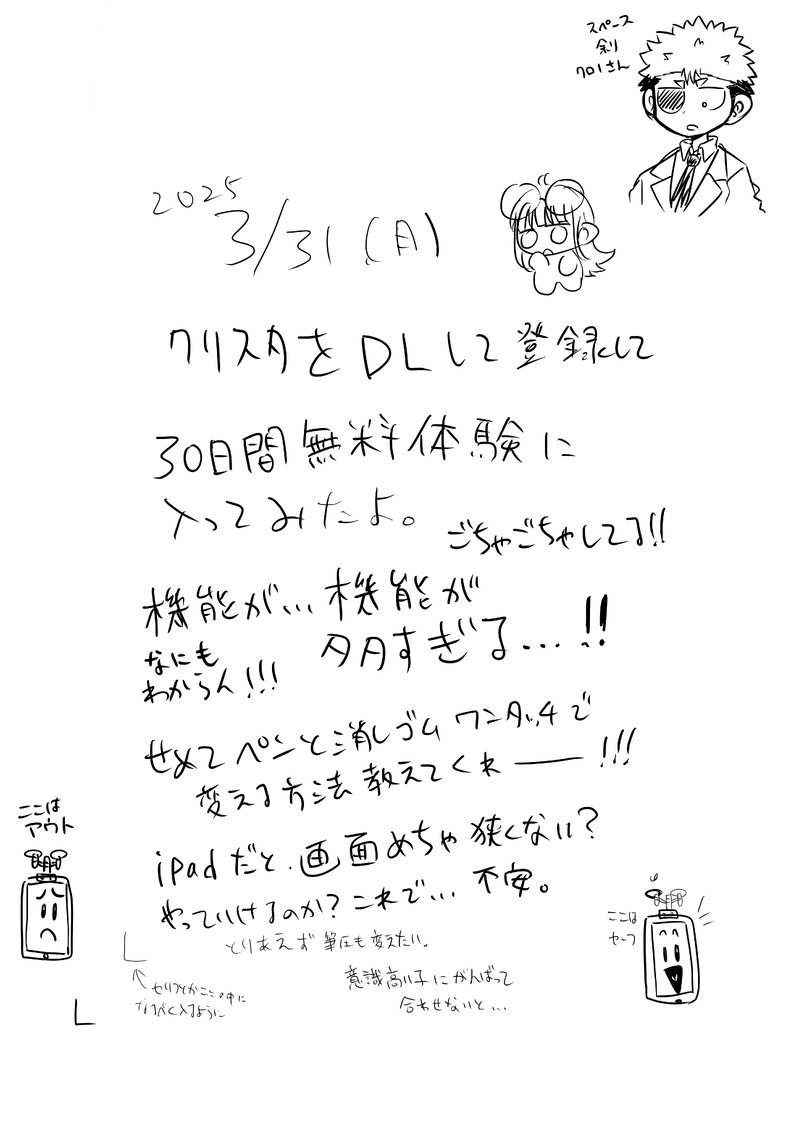 スペース
余り
クロノさん
2025
3/31(月)
クリスタをDLして登録して
30日間無料体験に
入ってみたよ。
ごちゃごちゃしてる!!
機能が…機能が
多すぎる…!!
なにも
わからん!!!
せめてペンと消しゴムワンタッチで
変える方法教えてくれー!!!
ここは
アウト
iPadだと、画面めちゃ狭くない?
やっていけるのか?これで…不安。
ここは
セーフ
とりあえず筆圧も変えたい。
↑セリフとかここの中に
なるべく入るように
意識高い子にがんばって
合わせないと…